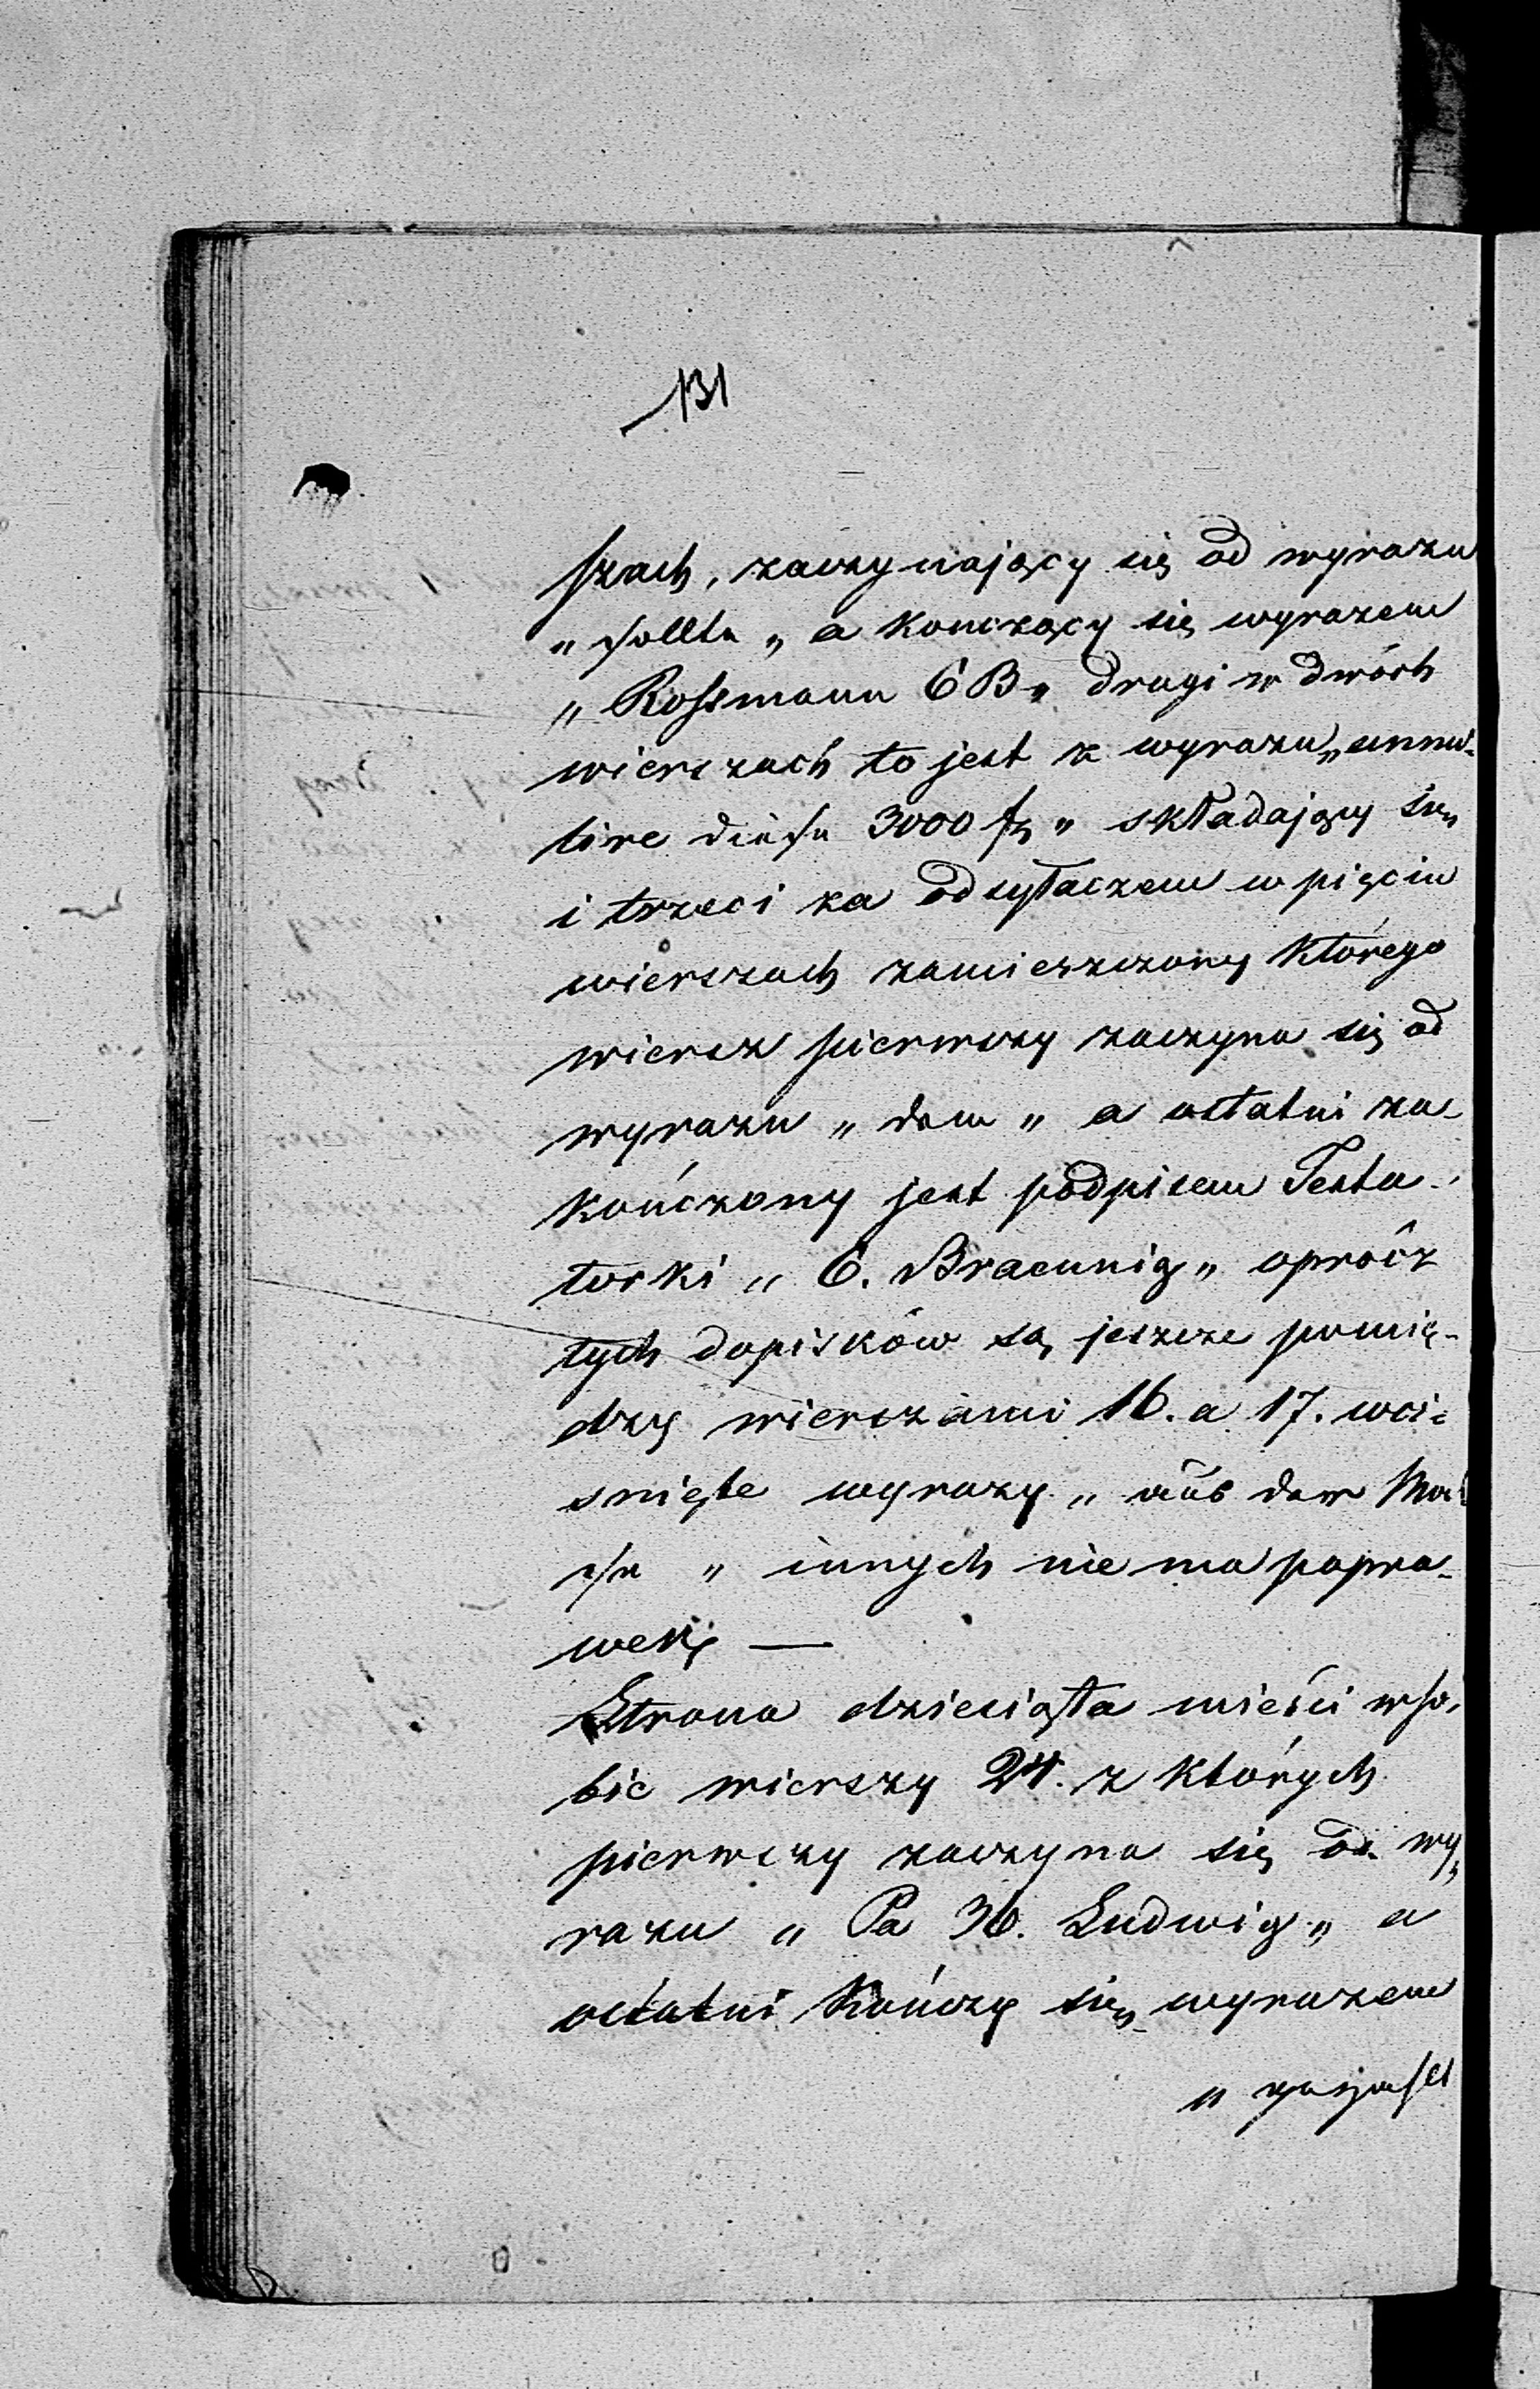 131
szach, zaczynający się od wyrazu
„ sollte „ a kończący się wyrazem
„ Rossmann EB „ drugi w dwóch
wierszach to jest z wyrazu „
diese 3000 „ składający się
i trzeci za odsyłaczem w pięciu
wierszach zamieszczony którego
wiersz pierwszy zaczyna się od
wyrazu „ dem „ a ostatni za-
kończony jest podpisem Testa-
torki „ E. Braeunig „ oprócz
tych dopisków są jeszcze pomię-
dzy wierszami 16. a 17. wci-
śnięte wyrazy „ aus der
„ innych nie ma popra-
wek; —
Strona dziesiąta mieści w so-
bie wierszy 24. z których
pierwszy zaczyna się od wy-
razu „ Pa 36. Ludwig „ a
ostatni kończy się wyrazem